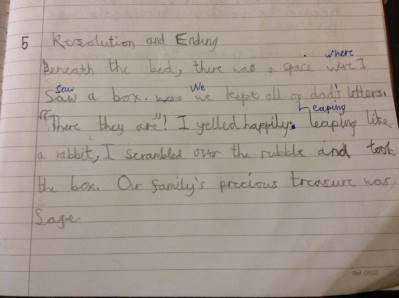 5 Resolution and Ending
where
Beneath the bed, there was a space were I
Saw We
Saw a box. we kept all of dad's letters.
Leaping
"There they are"! I yelled happily. leaping like
a rabbit, I scrambled over the rubble and took
the box. Our family's precious treasure was
Sage.